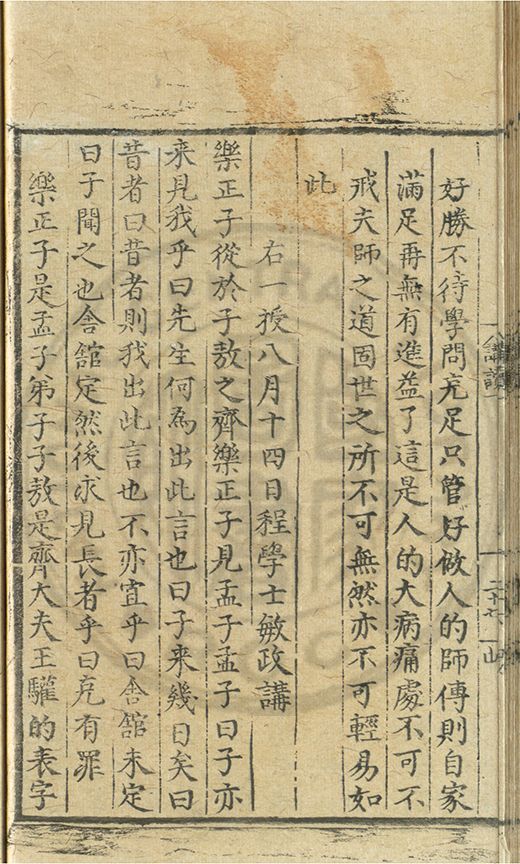 好勝不待學問充足只管好做人的師傅則自家
滿足再無有進益了這是人的大病痛處不可不
戒夫師之道固世之所不可無然亦不可輕易如
此
右一授八月十四日程學士敏政講
樂正子從於子敖之齊樂正子見孟子孟子曰子亦
来見我乎曰先生何為出此言也曰子来幾日矣曰
昔者曰昔者則我出此言也不亦宜乎曰舍舘未定
曰子聞之也舍舘定然後求見長者乎曰克有罪
樂正子是孟子弟子子敖是齊大夫王驩的表字